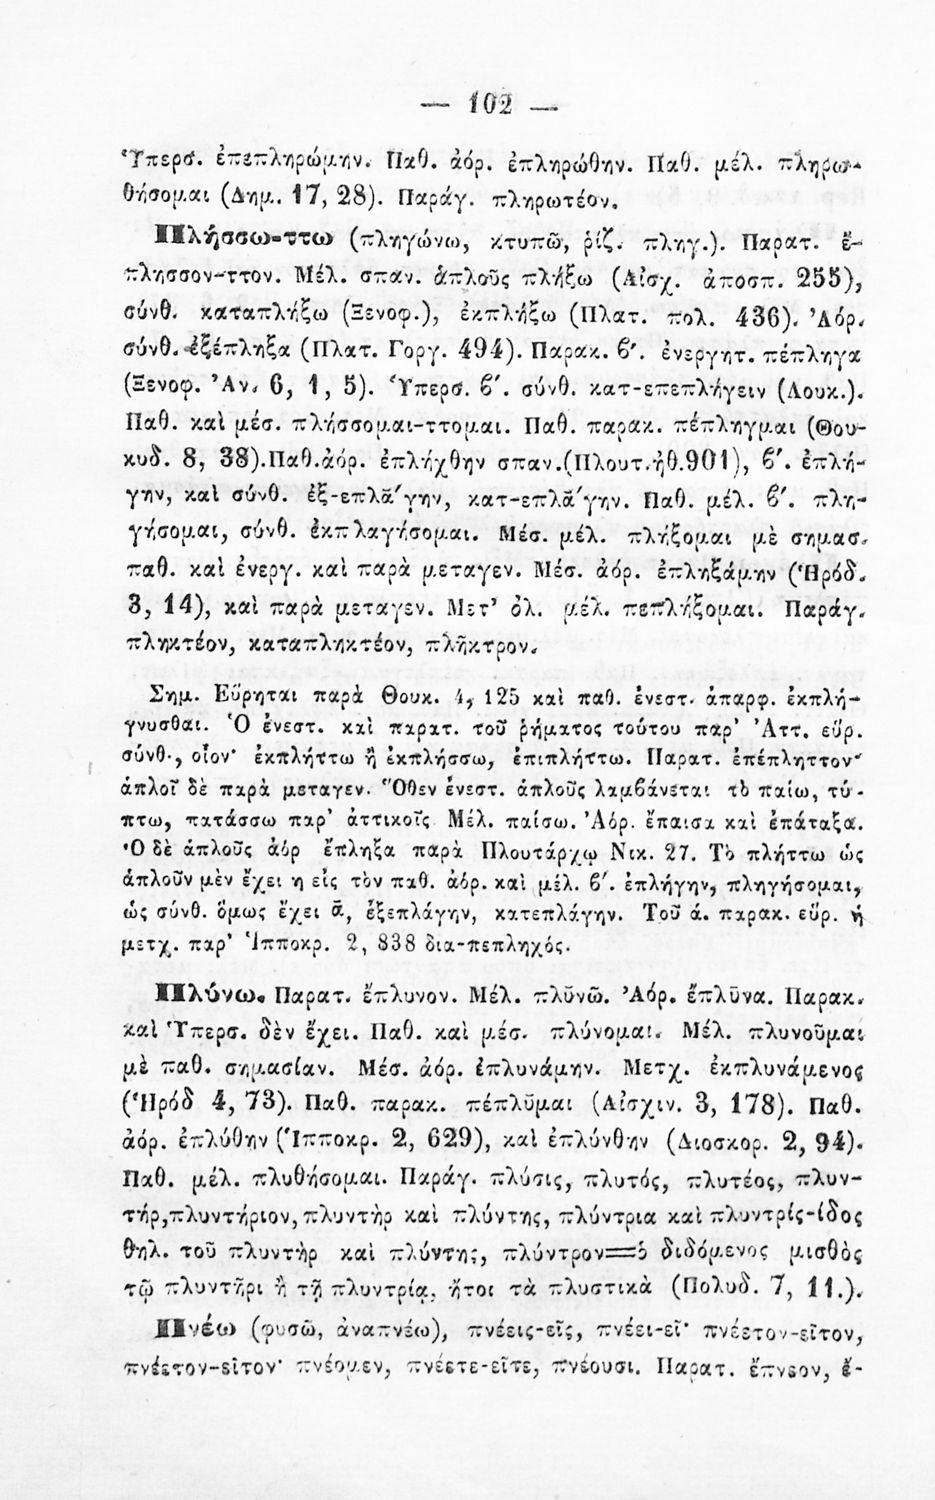 — 102 —
Ὑπερσ. ἐπεπληρώμην. Παθ. ἀόρ. ἐπληρώθην. Παθ. μέλ. πληρω-
θήσομαι (Δημ. 17, 28). Παράγ. πληρωτέον.
Πλήσσω-ττω (πληγώνω, κτυπῶ, ῥίζ. πληγ.). Παρατ. ἔ-
πλησσον-ττον. Μέλ. σπαν. ἁπλοῦς πλήξω (Αἰσχ. ἀποσπ. 255),
σύνθ. καταπλήξω (Ξενοφ.), ἐκπλήξω (Πλατ. πολ. 436). Ἀόρ.
σύνθ. ἐξέπληξα (Πλατ. Γοργ. 494). Παρακ. β′. ἐνεργητ. πέπληγα
(Ξενοφ. Ἀν. 6, 1, 5). Ὑπερσ. β′. σύνθ. κατ-επεπλήγειν (Λουκ.).
Παθ. καὶ μέσ. πλήσσομαι-ττομαι. Παθ. παρακ. πέπληγμαι (Θου-
κυδ. 8, 38).Παθ.ἀόρ. ἐπλήχθην σπαν.(Πλουτ.ἠθ.901), β′. ἐπλή-
γην, καὶ σύνθ. ἐξ-επλᾰ́γην, κατ-επλᾰ́γην. Παθ. μέλ. β′. πλη-
γήσομαι, σύνθ. ἐκπλαγήσομαι. Μέσ. μέλ. πλήξομαι μὲ σημασ.
παθ. καὶ ἐνεργ. καὶ παρὰ μεταγεν. Μέσ. ἀόρ. ἐπληξάμην (Ἡρόδ.
3, 14), καὶ παρὰ μεταγεν. Μετ’ ὀλ. μέλ. πεπλήξομαι. Παράγ.
πληκτέον, καταπληκτέον, πλῆκτρον.
Σημ. Εὕρηται παρὰ Θουκ. 4, 125 καὶ παθ. ἐνεστ. ἀπαρφ. ἐκπλή-
γνυσθαι. Ὁ ἐνεστ. καὶ παρατ. τοῦ ῥήματος τούτου παρ’ Ἀττ. εὕρ.
σύνθ., οἷον· ἐκπλήττω ἢ ἐκπλήσσω, ἐπιπλήττω. Παρατ. ἐπέπληττον·
ἁπλοῖ δὲ παρὰ μεταγεν. Ὅθεν ἐνεστ. ἁπλοῦς λαμβάνεται τὸ παίω, τύ-
πτω, πατάσσω παρ’ ἀττικοῖς Μέλ. παίσω. Ἀόρ. ἔπαισα καὶ ἐπάταξα.
Ὁ δὲ ἁπλοῦς ἀόρ ἔπληξα παρὰ Πλουτάρχῳ Νικ. 27. Τὸ πλήττω ὡς
ἁπλοῦν μὲν ἔχει η εἰς τὸν παθ. ἀόρ. καὶ μέλ. β′. ἐπλήγην, πληγήσομαι,
ὡς σύνθ. ὅμως ἔχει ᾰ, ἐξεπλάγην, κατεπλάγην. Τοῦ ά. παρακ. εὕρ. ἡ
μετχ. παρ’ Ἱπποκρ. 2, 838 δια-πεπληχός.
Πλύνω. Παρατ. ἔπλυνον. Μέλ. πλῠνῶ. Ἀόρ. ἔπλῡνα. Παρακ.
καὶ Ὑπερσ. δὲν ἔχει. Παθ. καὶ μέσ. πλύνομαι. Μέλ. πλυνοῦμαι
μὲ παθ. σημασίαν. Μέσ. ἀόρ. ἐπλυνάμην. Μετχ. ἐκπλυνάμενος
(Ἡρόδ 4, 73). Παθ. παρακ. πέπλῠμαι (Αἰσχιν. 3, 178). Παθ.
ἀόρ. ἐπλύθην (Ἱπποκρ. 2, 629), καὶ ἐπλύνθην (Διοσκορ. 2, 94).
Παθ. μέλ. πλυθήσομαι. Παράγ. πλύσις, πλυτός, πλυτέος, πλυν-
τήρ,πλυντήριον,πλυντὴρ καὶ πλύντης, πλύντρια καὶ πλυντρίς-ίδος
θηλ. τοῦ πλυντὴρ καὶ πλύντης, πλύντρον=ὁ διδόμενος μισθὸς
τῷ πλυντῆρι ἢ τῇ πλυντρίᾳ, ἤτοι τὰ πλυστικὰ (Πολυδ. 7, 11.).
Πνέω (φυσῶ, ἀναπνέω), πνέεις-εῖς, πνέει-εῖ· πνέετον-εῖτον,
πνέετον-εῖτον· πνέομεν, πνέετε-εῖτε, πνέουσι. Παρατ. ἔπνεον, ἔ-